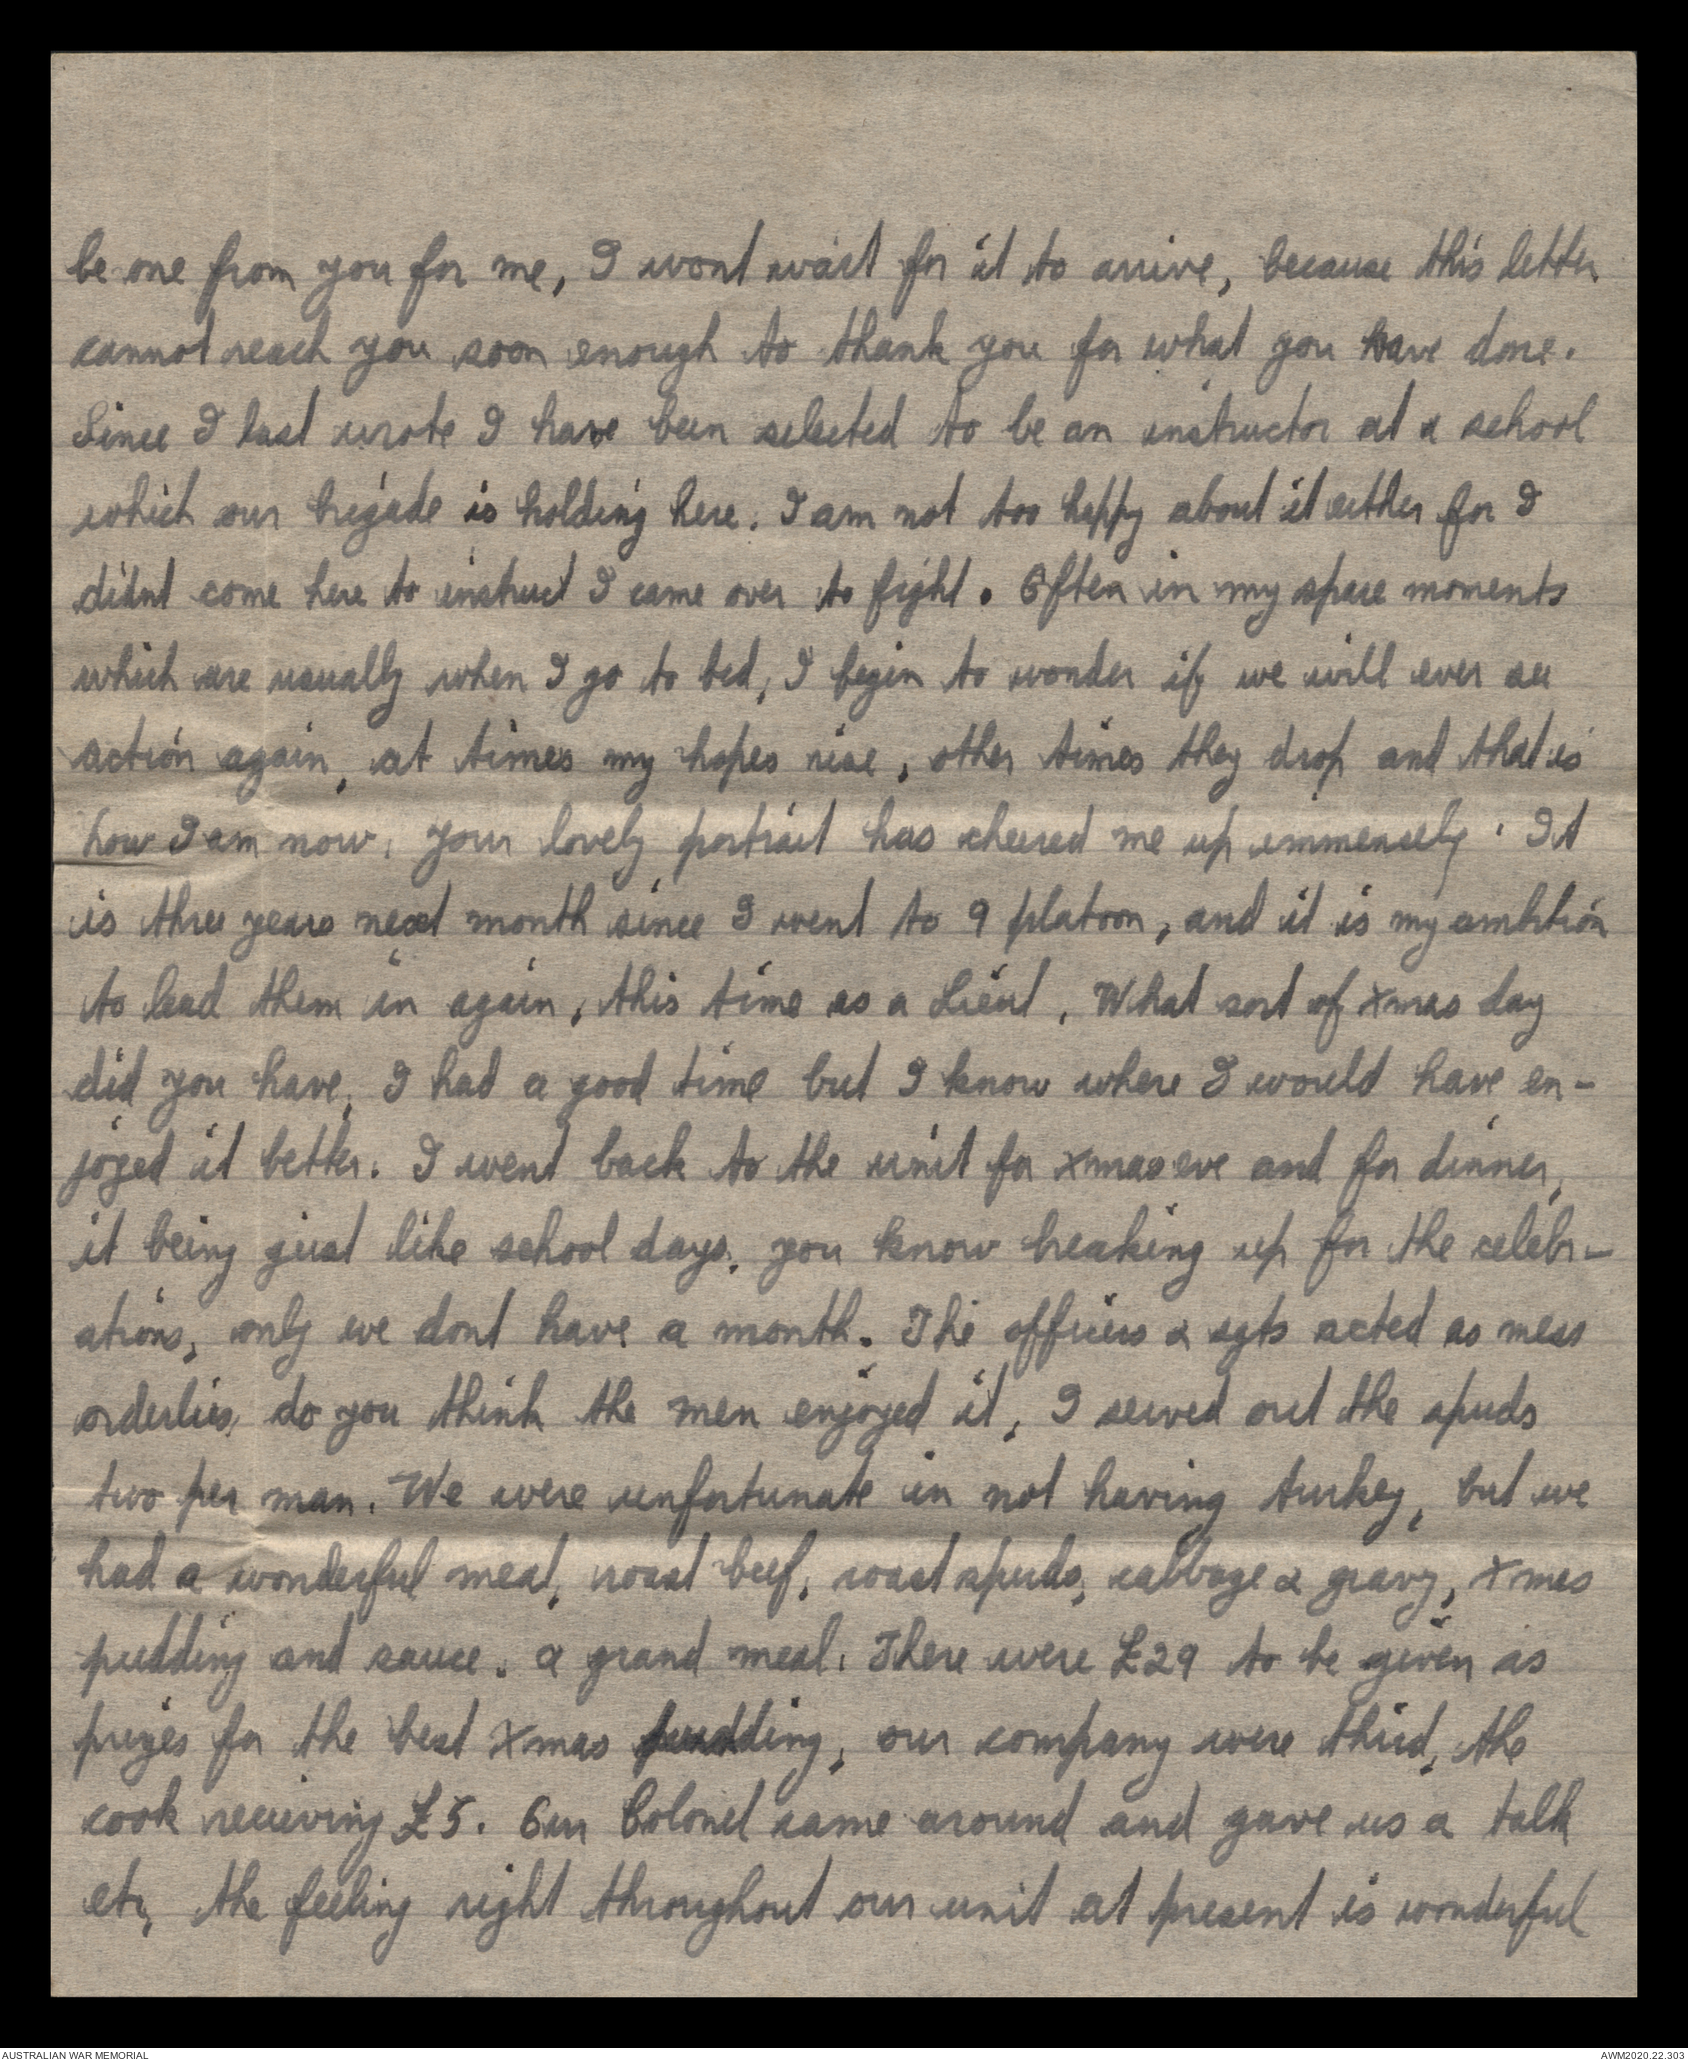 be one from you for me, I wont wait for it to arrive, because this letter
cannot reach you soon enough to thank you for what you have done.
Since I last wrote I have been selected to be an instructor at a school
which our brigade is holding here. I am not too happy about it either for I
didnt come here to instruct I came over to fight. Often in my spare moments
which are usually when I go to bed, I begin to wonder if we will ever see
action again, at times my hopes rise, other times they drop and that is
how I am now. Your lovely portrait has cheered me up immensely. It
is three years next month since I went to 9 platoon, and it is my ambition
to lead them in again, this time as a Lieut. What sort of Xmas day
did you have, I had a good time but I know where I would have en-
joyed it better. I went back to the unit for Xmas eve and for dinner,
it being just like school days, you know breaking up for the celebr-
ations, only we dont have a month. The officers & sgts acted as mess
orderlies, do you think the men enjoyed it, I served out the spuds
two per man. We were unfortunate in not having turkey, but we
had a wonderful meal, roast beef, roast spuds, cabbage & gravy, Xmas
pudding and sauce. a grand meal. There were £29 to be given as
prizes for the best Xmas pudding, our company were third, the
cook receiving £5. Our Colonel came around and gave us a talk
etc, the feeling right throughout our unit at present is wonderful
AUSTRALIAN WAR MEMORIAL
AWM2020.22.303